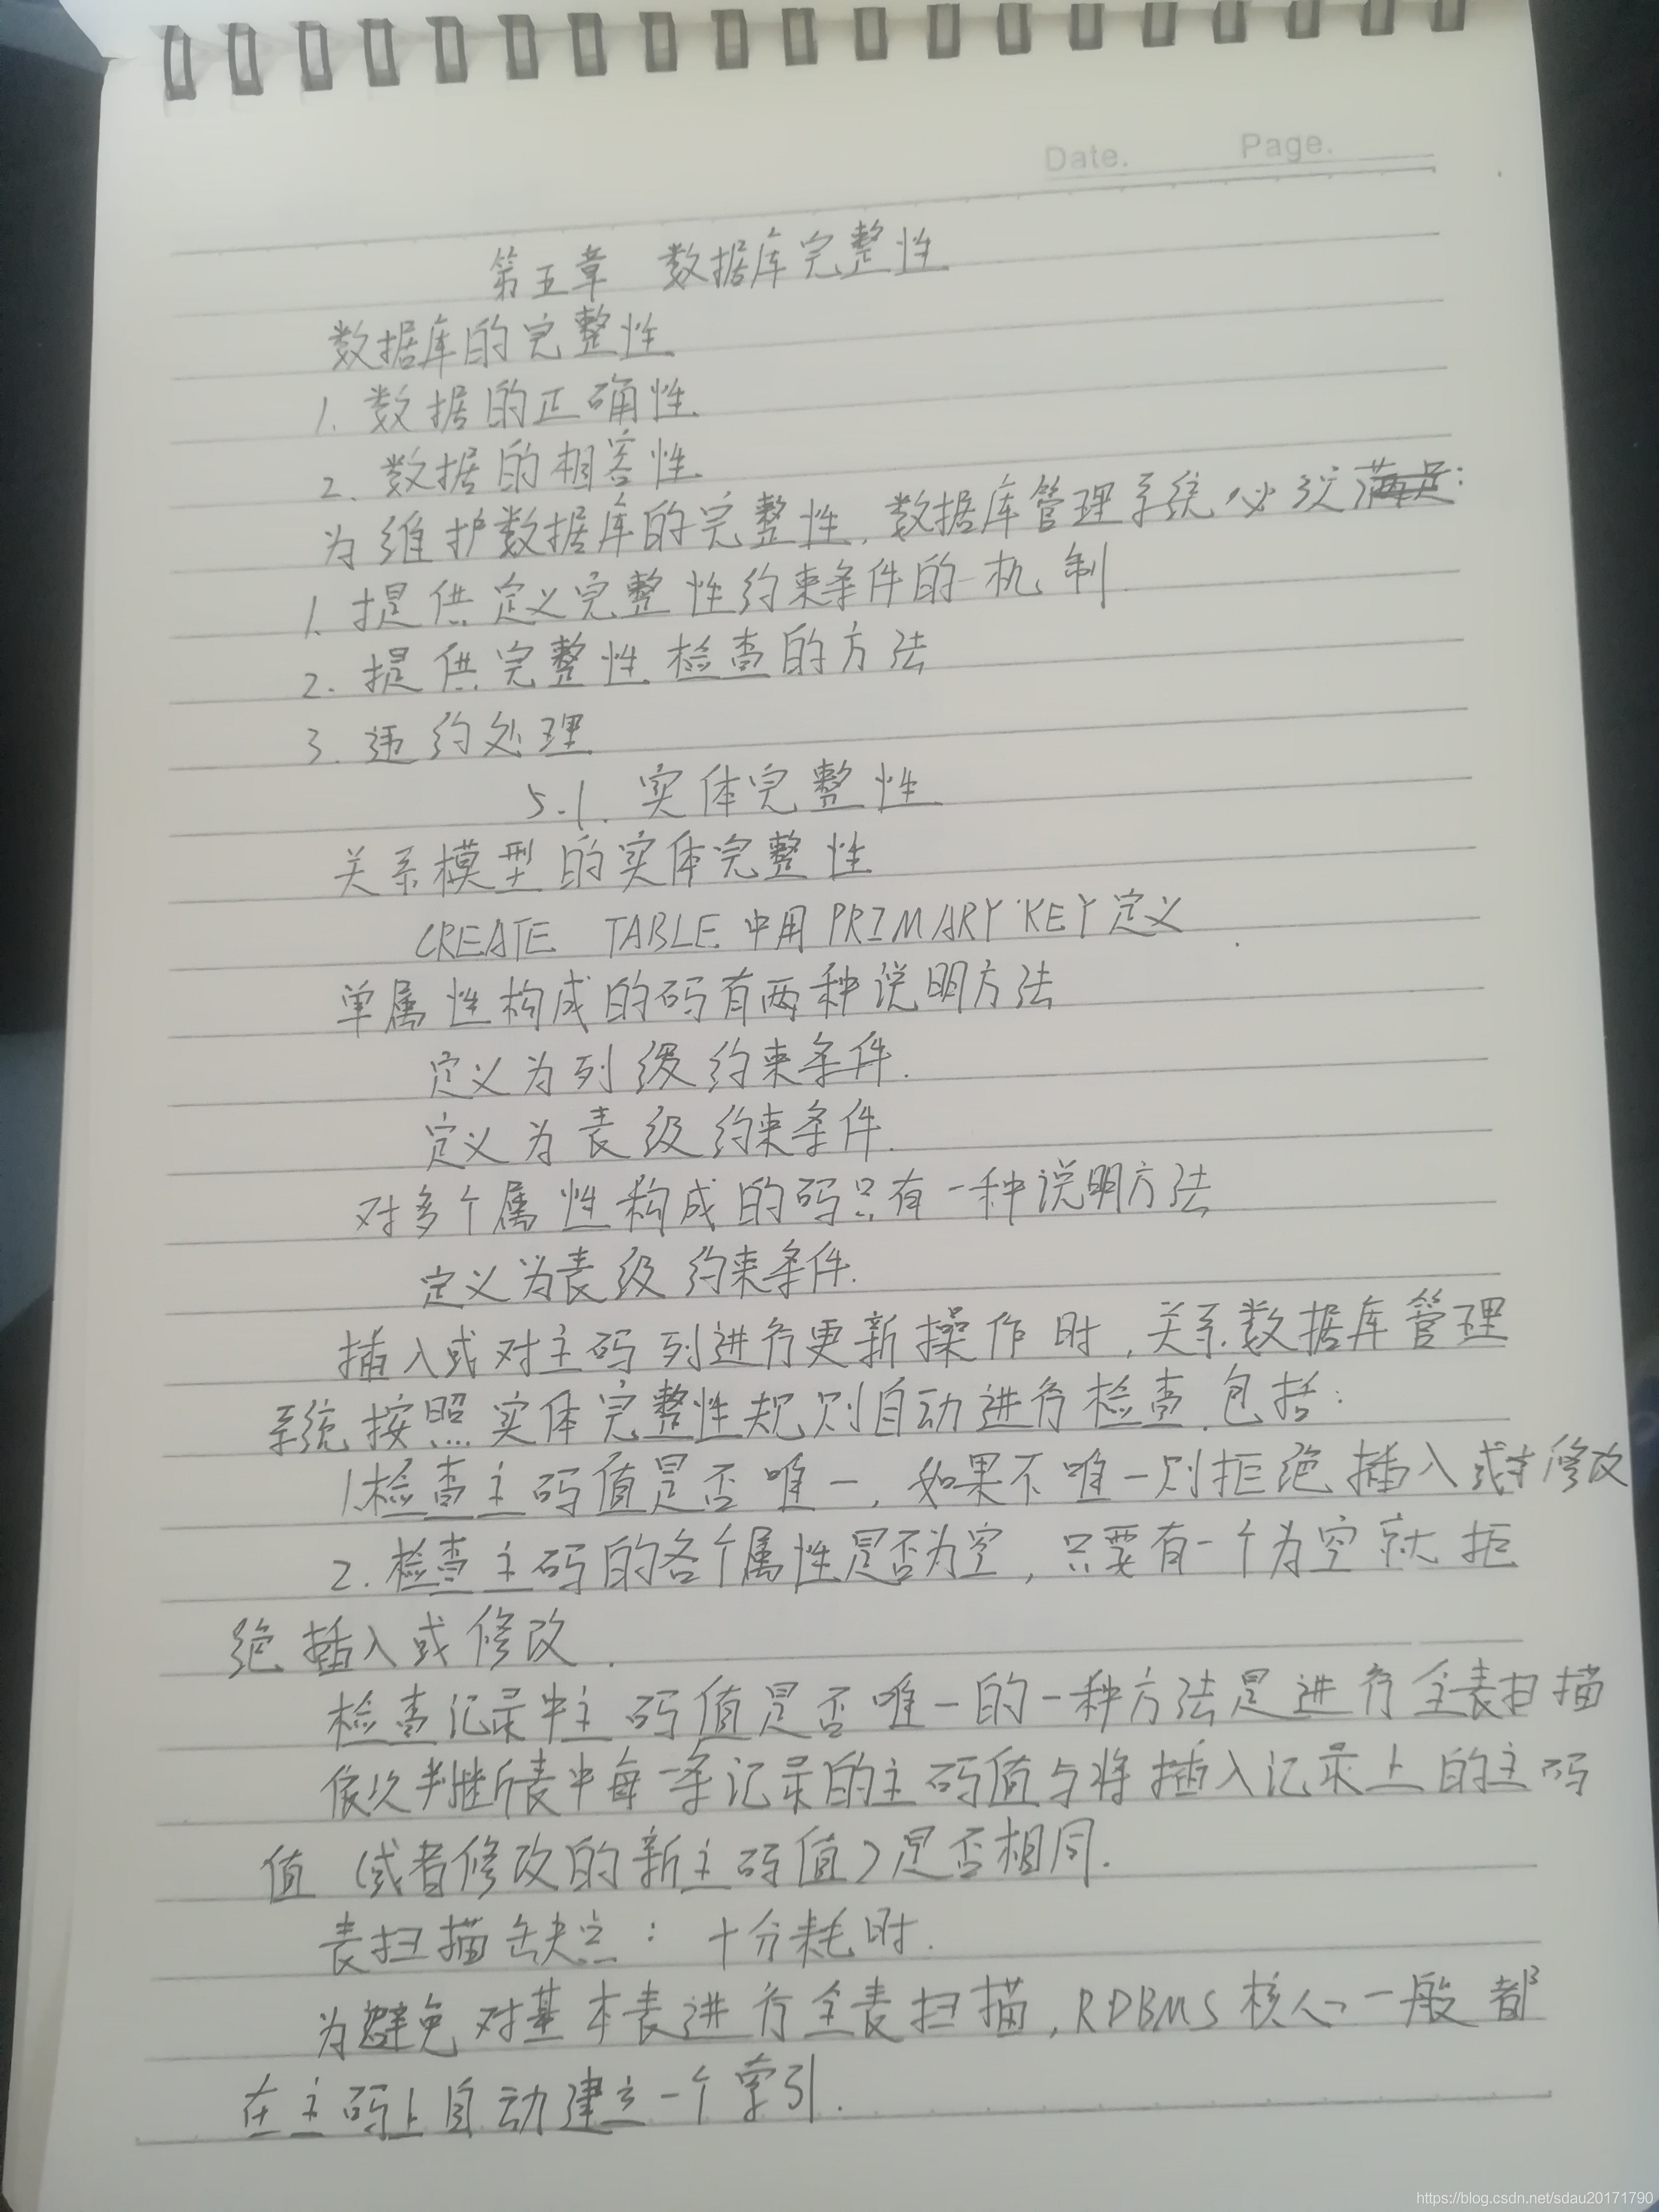 Date. Page.
第五章 数据库完整性
数据库的完整性
1. 数据的正确性.
2. 数据的相容性.
为维护数据库的完整性,数据库管理系统必须满足:
1. 提供定义完整性约束条件的机制
2. 提供完整性检查的方法
3. 违约处理
5.1. 实体完整性
关系模型的实体完整性
CREATE TABLE 中用 PRIMARY KEY 定义
单属性构成的码有两种说明方法
定义为列级约束条件.
定义为表级约束条件.
对多个属性构成的码只有一种说明方法
定义为表级约束条件.
插入或对主码列进行更新操作时,关系数据库管理
系统按照实体完整性规则自动进行检查.包括:
1.检查主码值是否唯一,如果不唯一则拒绝插入或修改
2.检查主码的各个属性是否为空,只要有一个为空就拒
绝插入或修改.
检查记录中主码值是否唯一的一种方法是进行全表扫描
依次判断表中每一条记录的主码值与将插入记录上的主码
值(或者修改的新主码值)是否相同.
表扫描缺点: 十分耗时.
为避免对基本表进行全表扫描,RDBMS核心一般都
在主码上自动建立一个索引.
https://blog.csdn.net/sdau20171790